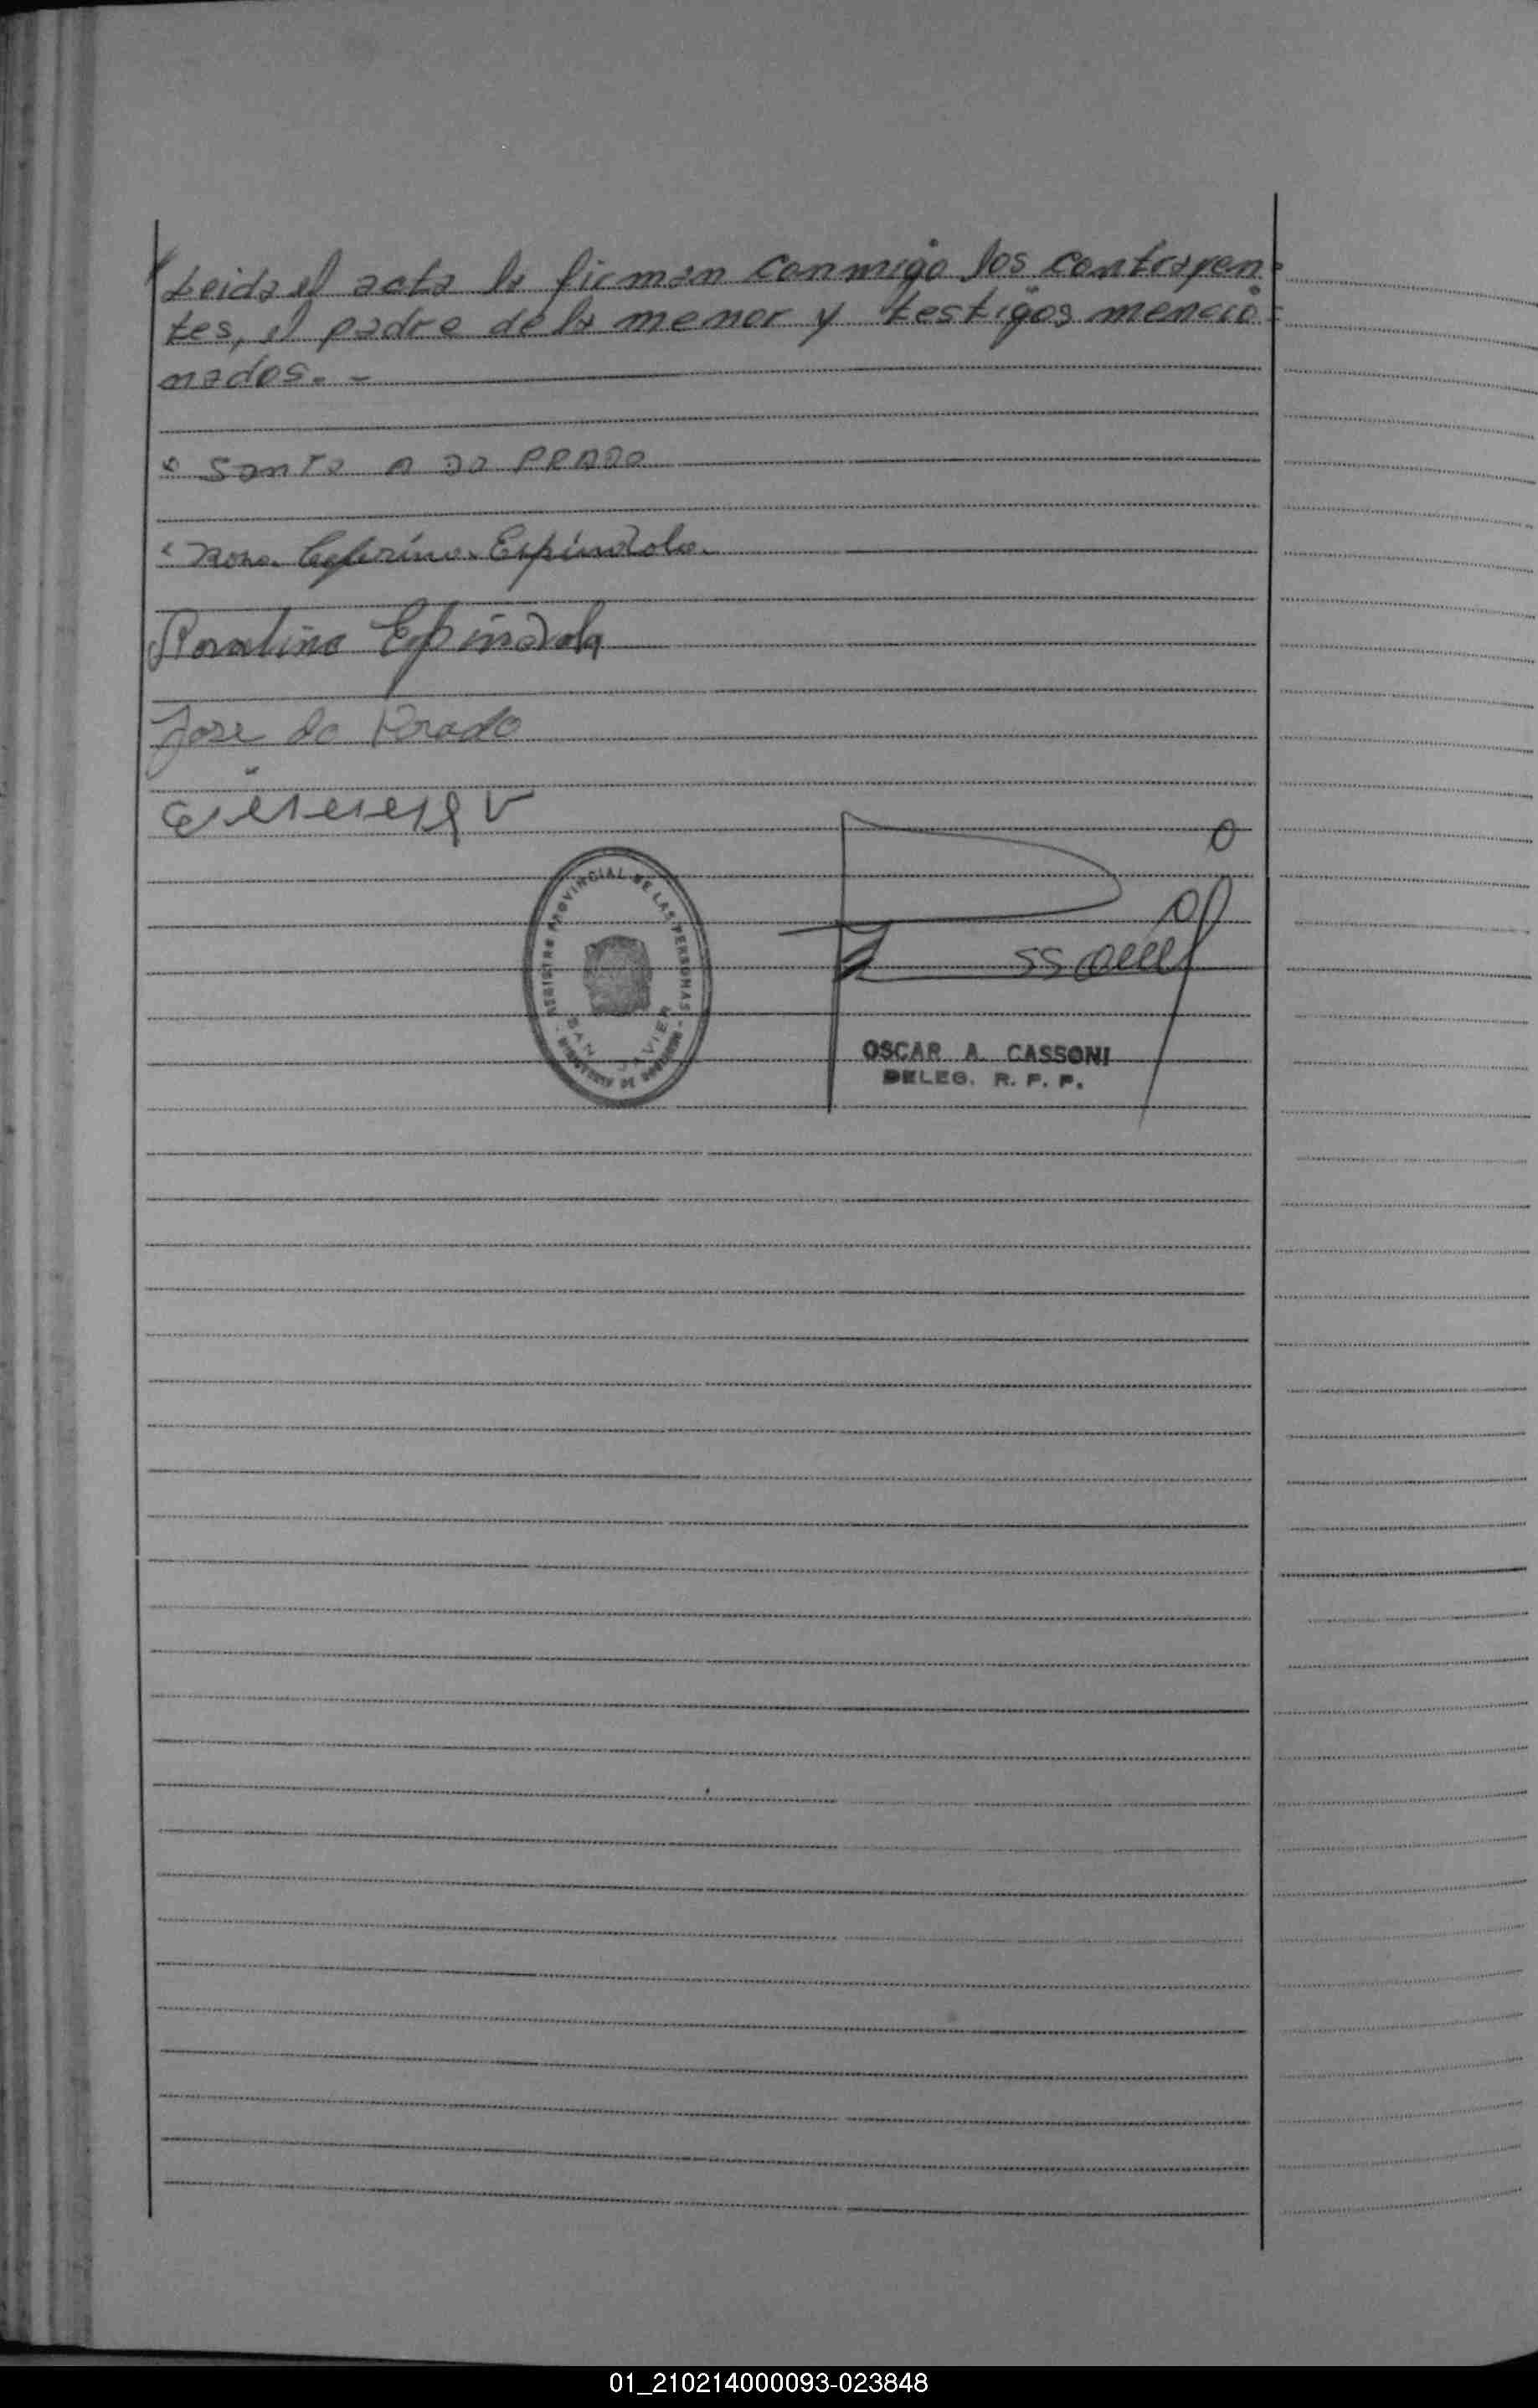 Leida el acta la firman conmigo los contrayen-
tes, el padre de la menor y testigos mencio-
nados. -
Santo A do PRADO
Ceferino Espindola
Espindola
Jose do Prado
REGISTRO PROVINCIAL DE LAS PERSONAS
SAN JAVIER
MINISTERIO DE GOBIERNO
OSCAR A. CASSONI
DELEG. R. P. P.
01_210214000093-023848